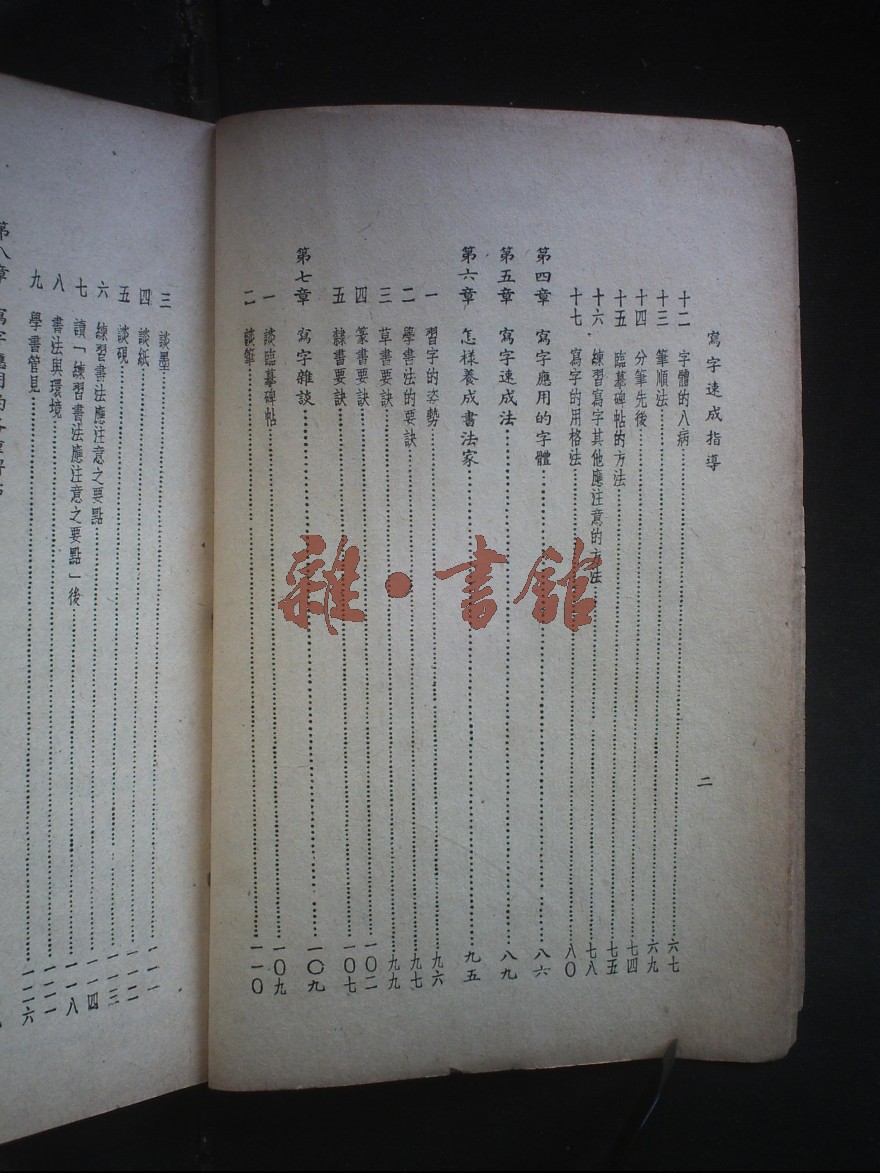 寫字速成指導
二
十二 字體的八病 六七
十三 筆順法 六九
十四 分筆先後 七四
十五 臨摹碑帖的方法 七五
十六 練習寫字其他應注意的方法 七八
十七 寫字的用格法 八〇
第四章 寫字應用的字體 八六
第五章 寫字速成法 八九
第六章 怎樣養成書法家 九五
一 習字的姿勢 九六
二 學書法的要訣 九七
三 草書要訣 九九
四 篆書要訣 一〇二
五 隸書要訣 一〇七
第七章 寫字雜談 一〇九
一 談臨摹碑帖 一〇九
二 談筆 一一〇
三 談墨 一一一
四 談紙 一一二
五 談硯 一一三
六 練習書法應注意之要點 一一四
七 讀「練習書法應注意之要點」後 一一八
八 書法與環境 一二一
九 學書管見 一二六
第八章 寫字應用的
雜·書舘